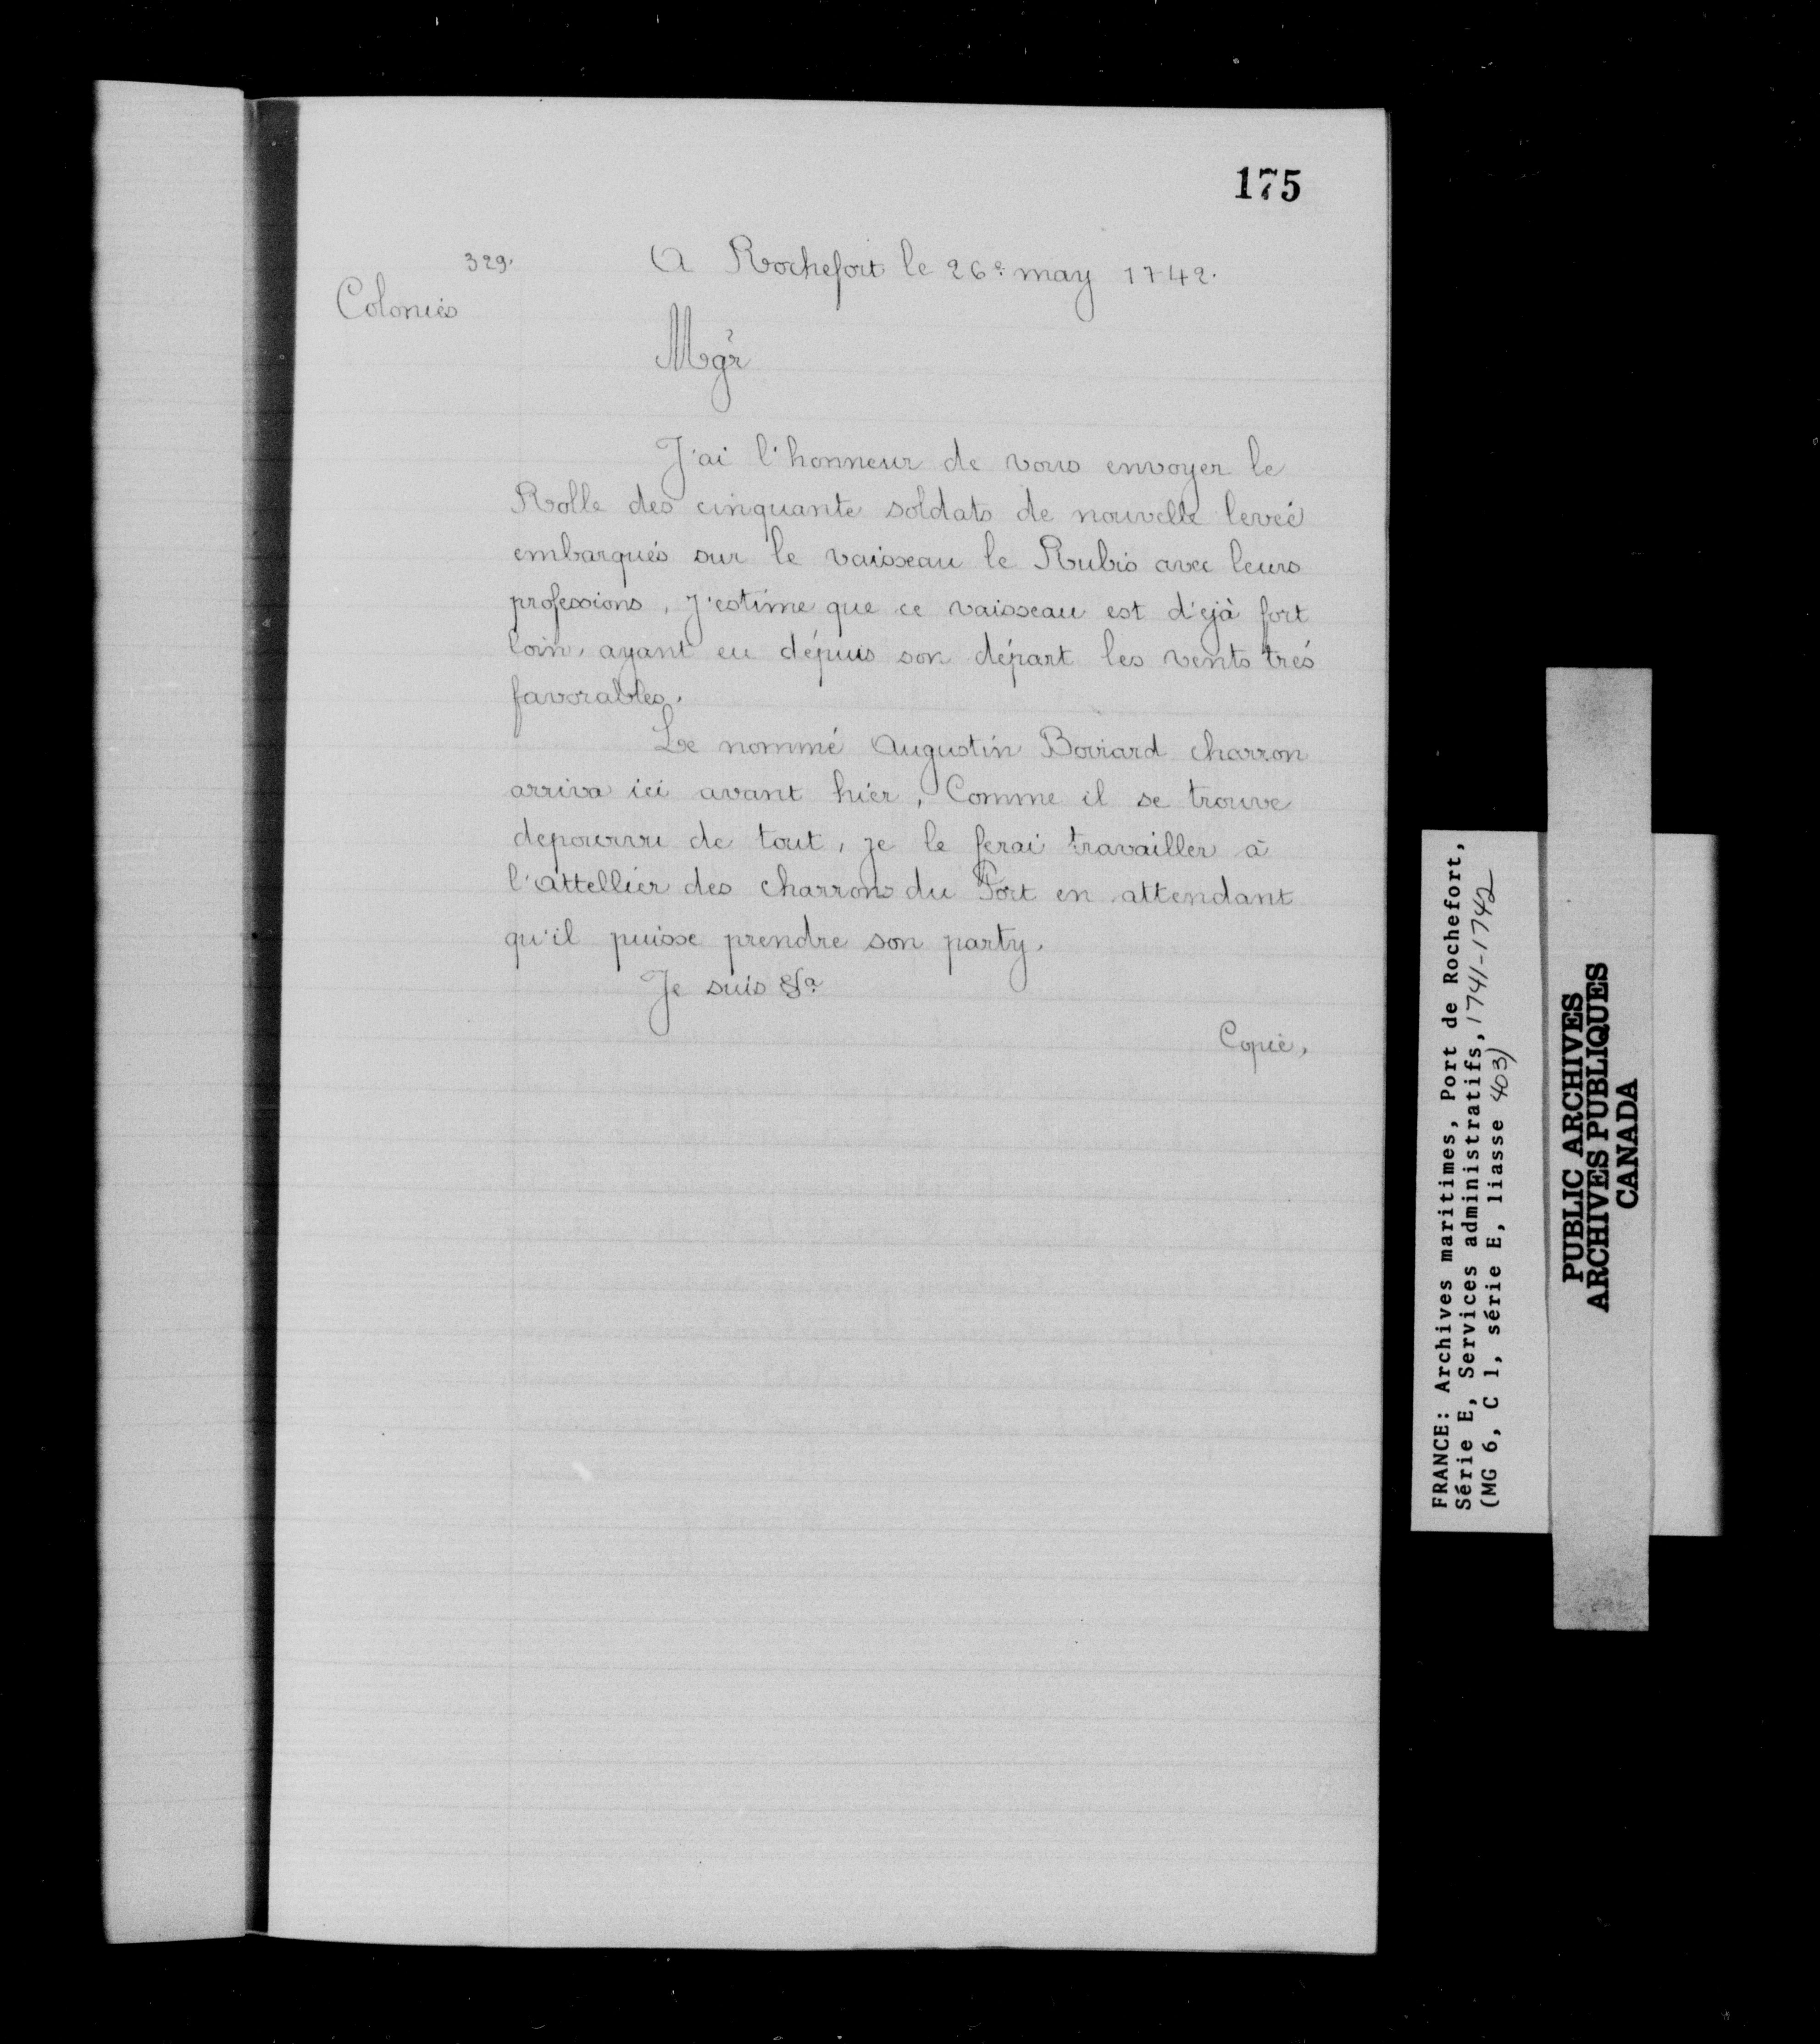 175
329.
A Rochefort le 26e may 1742.
Colonies
Mgr
J'ai l'honneur de vous envoyer le
Rolle des cinquante soldats de nouvelle leveé
embarqués sur le vaisseau le Rubis avec leurs
professions, J'estime que ce vaisseau est d'ejà fort
loin, ayant eu dépuis son départ les vents trés
favorables.
Le nommé Augustin Boviard charron
arriva ici avant hiér, Comme il se trouve
depourvu de tout, je le ferai travailler à
l'attellier des charrons du Port en attendant
qu'il puisse prendre son party.
Je suis &a
Copié,
FRANCE: Archives maritimes, Port de Rochefort,
Série E, Services administratifs, 1741-1742
(MG 6, C 1, série E, liasse 403)
PUBLIC ARCHIVES
ARCHIVES PUBLIQUES
CANADA